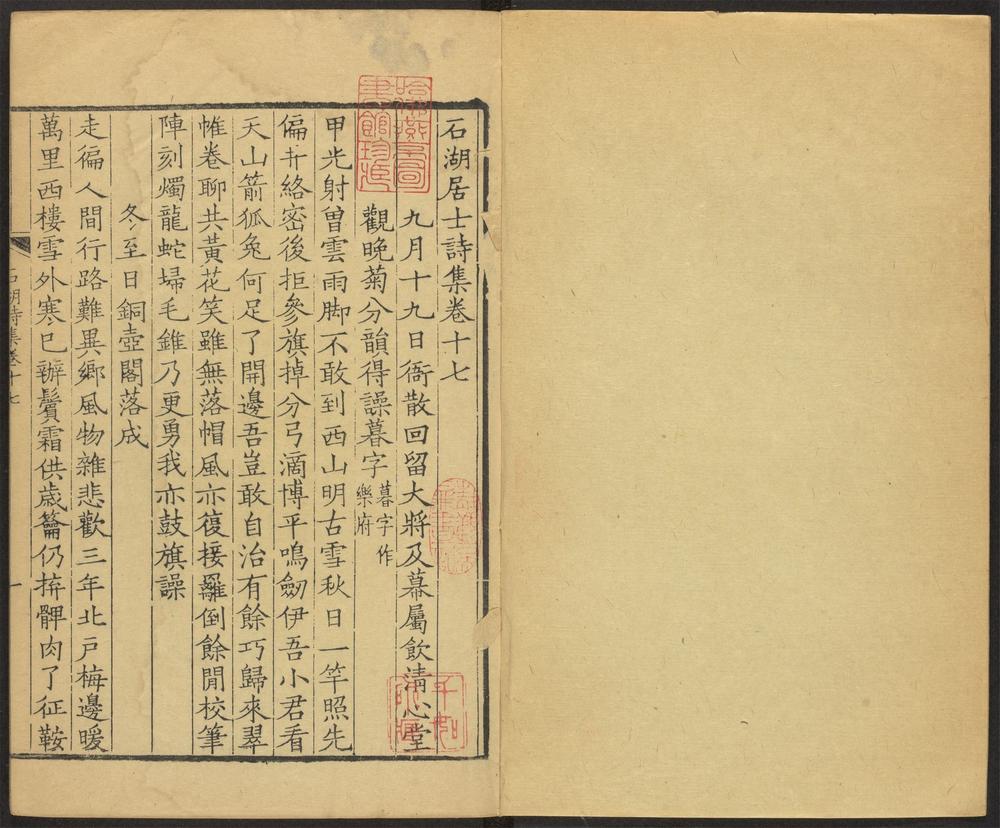 石湖居士詩集卷十七
九月十九日衙散回留大將及幕屬飲清心堂
觀晚菊分韻得譟暮字暮字作樂府
甲光射曽雲雨脚不敢到西山明古雪秋日一竿照先
偏廾絡密後拒參旗掉分弓滴博平鳴劒伊吾小君看
天山箭狐兔何足了開邊吾豈敢自治有餘巧歸來翠
帷卷聊共黃花笑雖無落帽風亦復接䍦倒餘閒校筆
陣刻燭龍蛇埽毛錐乃更勇我亦鼓旗譟
冬至日銅壺閣落成
走徧人間行路難異鄉風物雜悲歡三年北戸梅邊暖
萬里西樓雪外寒已辦鬢霜供歳籥仍拚髀肉了征鞍
石湖詩集卷十七
一
哈佛燕京圖書館珍藏